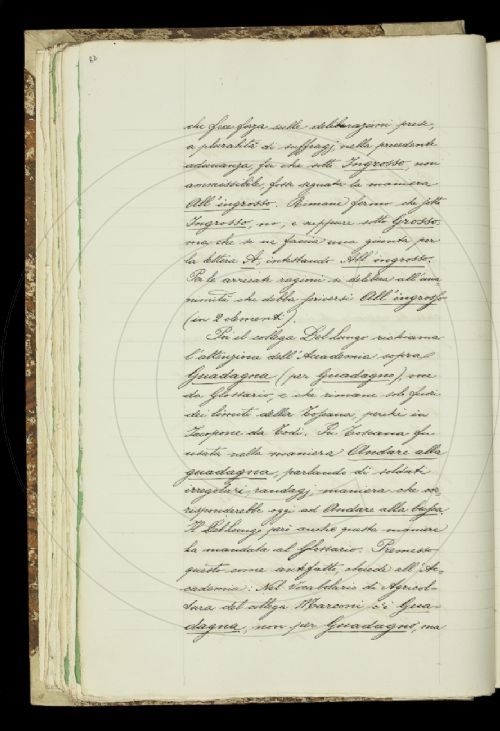 che fece forza sulle deliberazioni prese,
a pluralità di suffragj, nella precedente
adunanza, fu che sotto Ingrosso, non
ammissibile, fosse segnata la maniera
All'ingrosso. Rimane fermo che sotto
Ingrosso, no, e neppure sotto Grosso.
ma che se ne faccia una giunta per
la lettera A, intestando All'ingrosso.
Per le arrecate ragioni si delibera all'una
nimità che debba scriversi All'ingrosso
(in 2 elementi).
Poi el collega Del Lungo richiama
l'attenzione dell'Accademia sopra
Guadagna (per Guadagno), voce
da Glossario, e che rimane sol fuori
dei limiti della Toscana, perchè in
Jacopone da Todi. In Toscana fu
usata nella maniera Andare alla
guadagna, parlando di soldati
irregolari, randagj, maniera che cor
risponderebbe oggi ad Andare alla busca.
Il Del Lungo però anche questa maniera
la manda al Glossario. Premesso
questo come antefatto, chiede all'Ac-
cademia: Nel Vocabolario di Agricol-
tura del collega Marconi c'è Gua-
dagna, non per Guadagno, ma